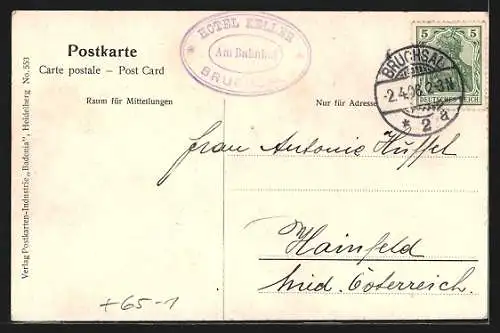 Postkarte
Carte postale – Post Card
Raum für Mitteilungen
Nur für Adresse
HOTEL KELLER
Am Bahnhof
5 5
DEUTSCHES REICH
BRUCHSAL
-2.4.06. 2-3N
* 2 a
Frau Antonie Hüffel
Hainfeld
Nied. Österreich.
+65-1
Verlag Postkarten-Industrie „Badenia", Heidelberg No. 553